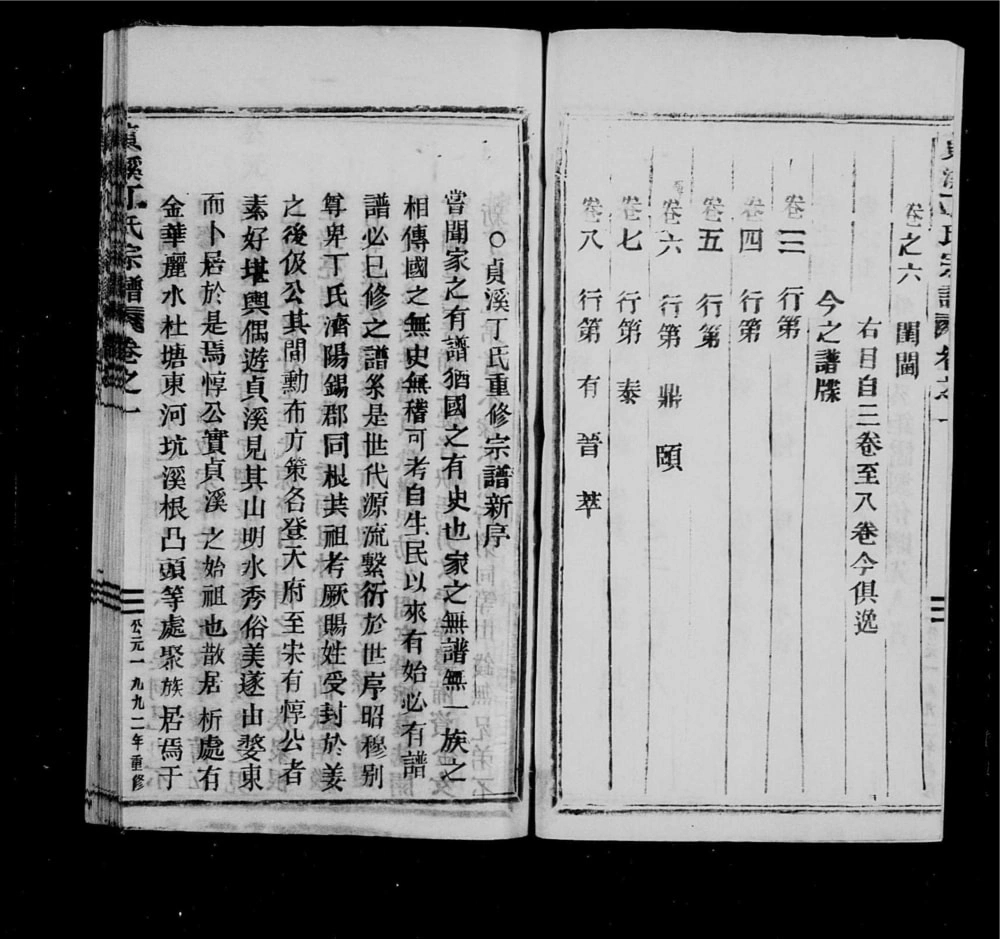 卷之六 閨閫
右目自三卷至八卷今俱逸
今之譜牒
卷三 行第
卷四 行第
卷五 行第
卷六 行第 鼎 頤
卷七 行第 泰
卷八 行第 有 晉 萃
○貞溪丁氏重修宗譜新序
嘗聞家之有譜猶國之有史也家之無譜無一族之
相傳國之無史無稽可考自生民以來有始必有譜
譜必已修之譜系是世代源流繫衍於世序昭穆別
尊卑丁氏濟陽錫郡同根共祖考厥賜姓受封於姜
之後伋公其間勳布方策名登天府至宋有惇公者
素好堪輿偶遊貞溪見其山明水秀俗美遂由婺東
而卜居於是焉惇公實貞溪之始祖也散居析處有
金華麗水杜塘東河坑溪根凸頭等處聚族居焉于
貞溪丁氏宗譜 卷之一
公元一九九二年重修